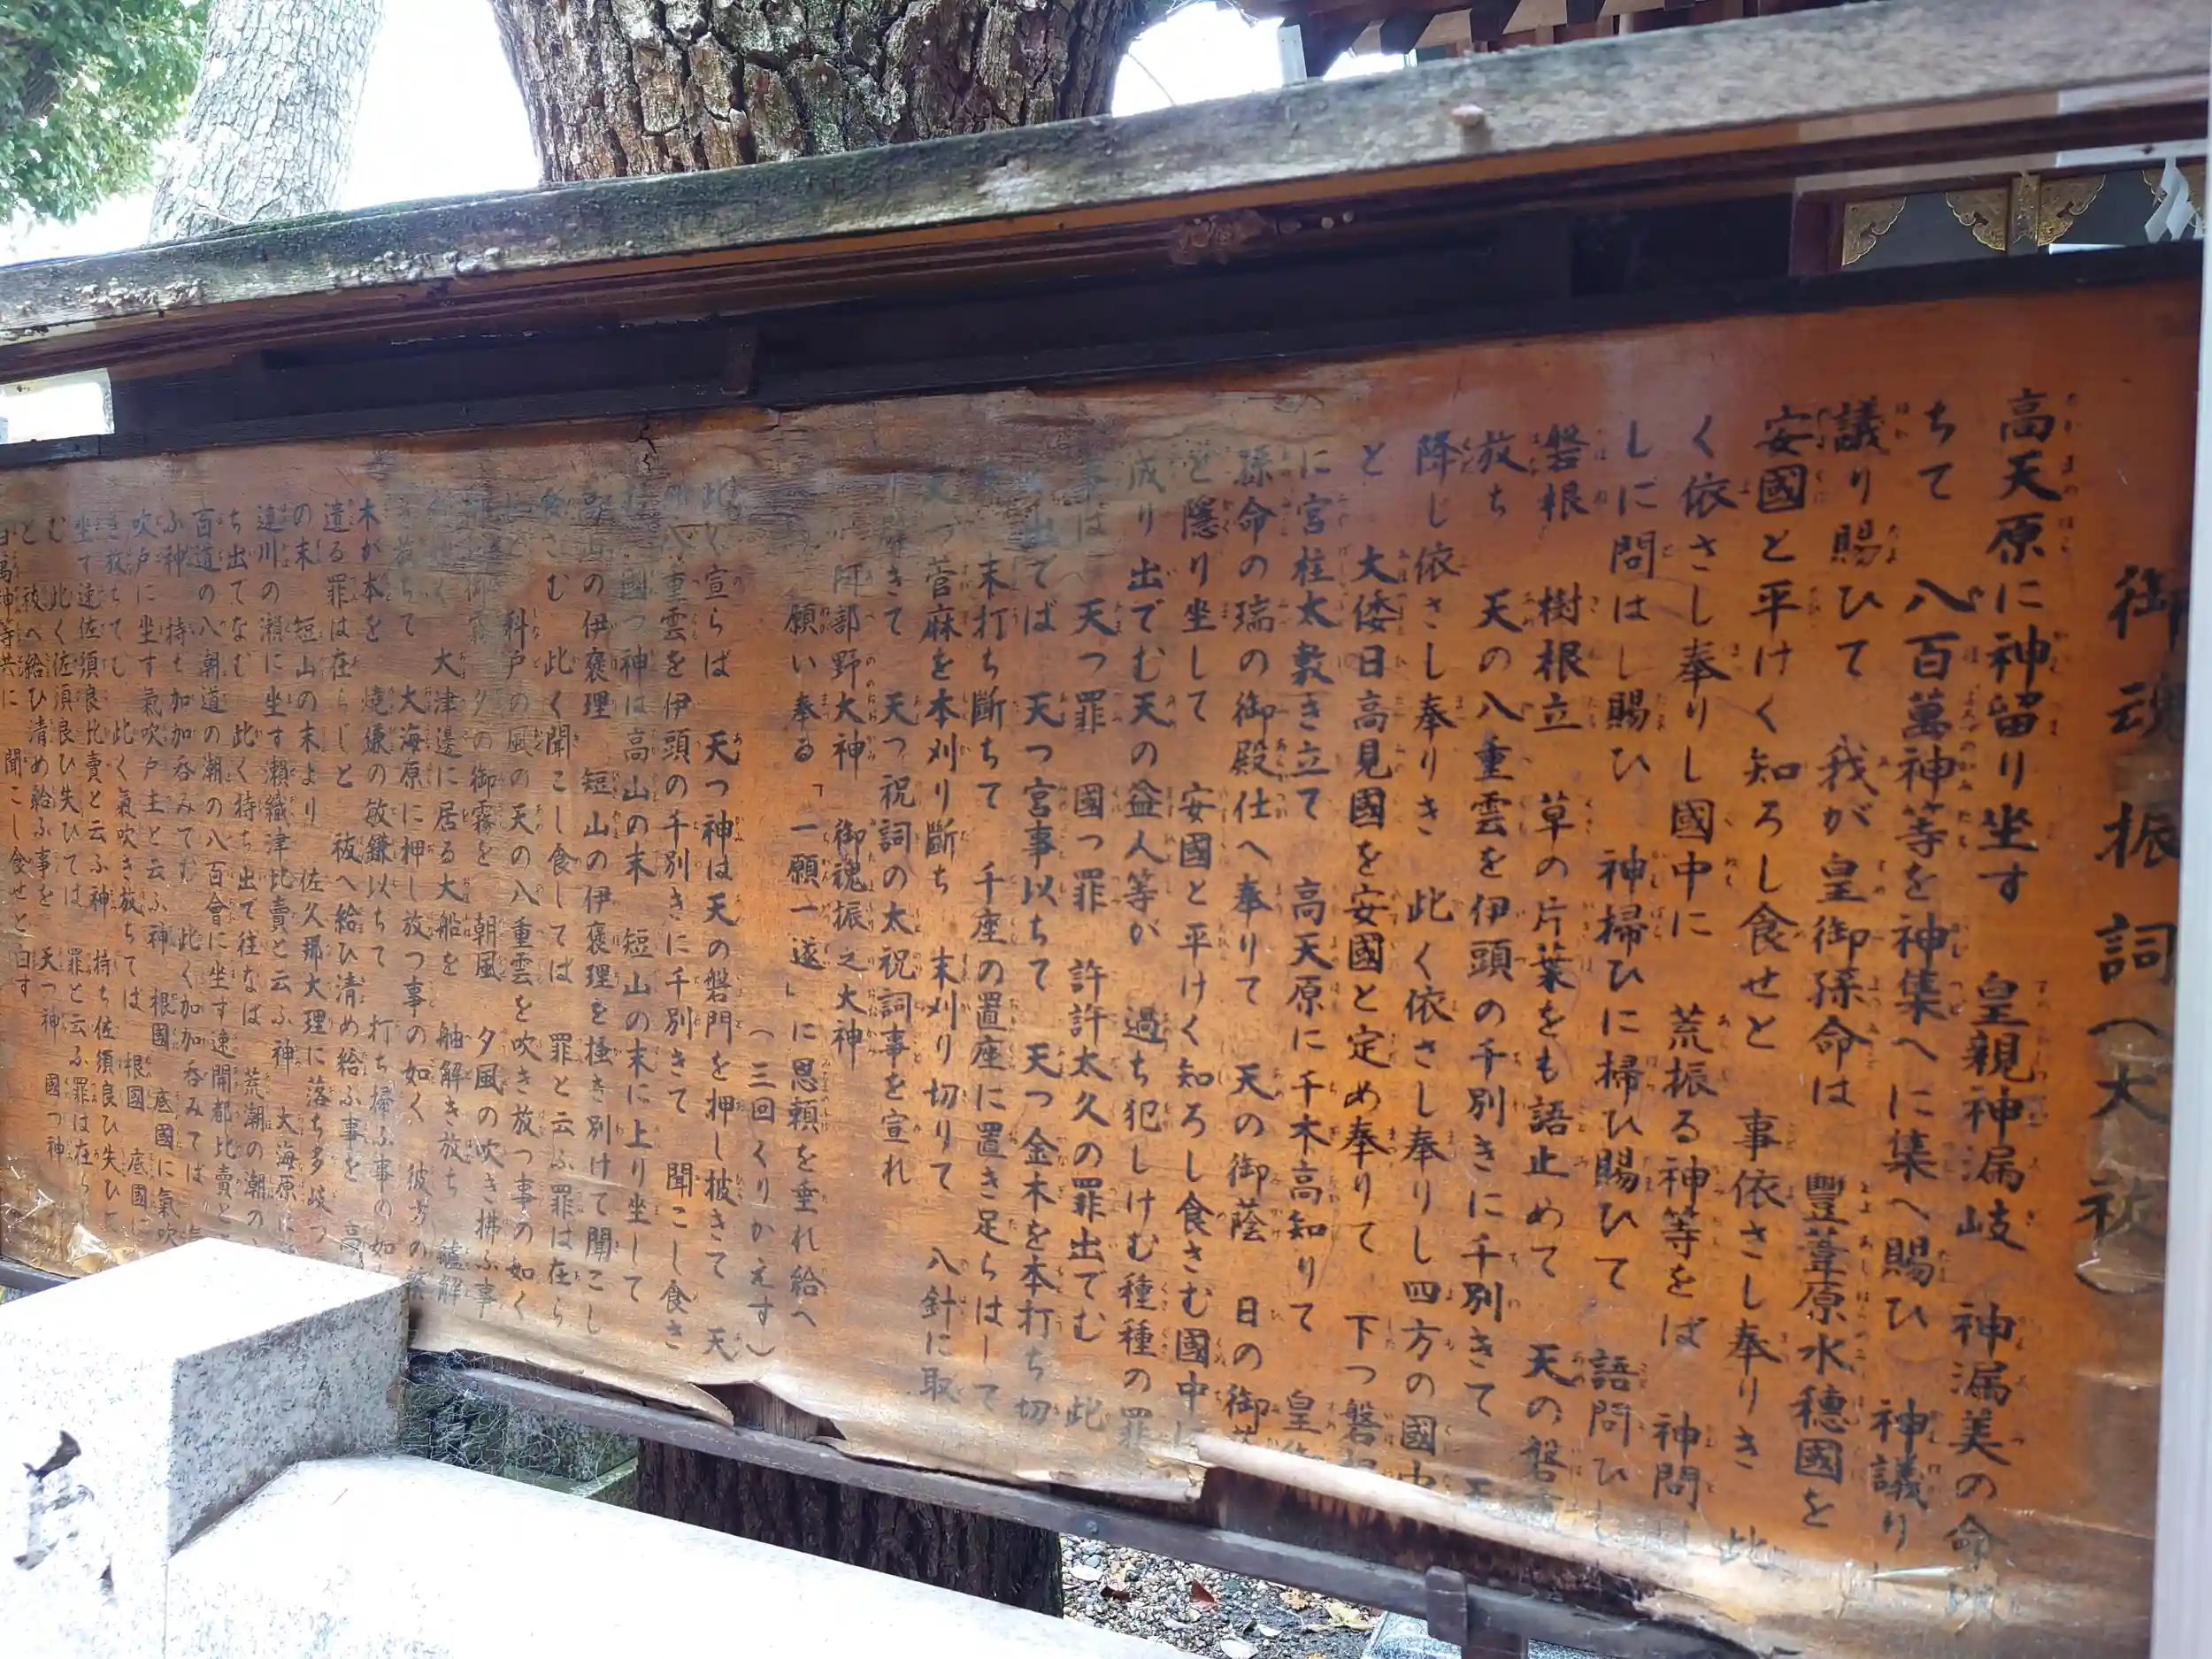 御魂振詞(大祓)
高天原に神留り坐す 皇親神漏岐 神漏美の命
ちて 八百萬神等を神集へに集へ賜ひ 神議り
議り賜ひて 我が皇御孫命は 豐葦原水穗國を
安國と平けく知ろし食せと 事依さし奉りき 此
く依さし奉りし國中に 荒振る神等をば 神問
しに問はし賜ひ 神掃ひに掃ひ賜ひて 語問ひし
磐根 樹根立 草の片葉をも語止めて 天の磐
放ち 天の八重雲を伊頭の千別きに千別きて
降し依さし奉りき 此く依さし奉りし四方の國中
と 大倭日高見國を安國と定め奉りて 下つ磐
に宮柱太敷き立て 高天原に千木高知りて 皇
孫命の瑞の御殿仕へ奉りて 天の御蔭 日の御
と隱り坐して 安國と平けく知ろし食さむ國中
成り出でむ天の益人等が 過ち犯しけむ種種の罪
事は 天つ罪 國つ罪 許許太久の罪出でむ 此
出でば 天つ宮事以ちて 天つ金木を本打ち切
末打ち斷ちて 千座の置座に置き足らはして
つ菅麻を本刈り斷ち 末刈り切りて 八針に取
きて 天つ祝詞の太祝詞事を宣れ
阿部野大神 御魂振之大神
願い奉る「一願一遂」に恩頼を垂れ給へ
(三回くりかえす)
此く宣らば 天つ神は天の磐門を押し披きて 天
八重雲を伊頭の千別きに千別きて 聞こし食さ
國つ神は高山の末 短山の末に上り坐して
高山の伊褒理 短山の伊褒理を搔き別けて聞こし
食さむ 此く聞こし食しては 罪と云ふ罪は在ら
科戸の風の天の八重雲を吹き放つ事の如く
御霧 夕の御霧を 朝風 夕風の吹き拂ふ事
大津邊に居る大船を 舳解き放ち 艫解
ちて 大海原に押し放つ事の如く 彼方の繁
木が本を 燒鎌の敏鎌以ちて 打ち掃ふ事の如
遺る罪は在らじと 祓へ給ひ清め給ふ事を 高
の末 短山の末より 佐久那太理に落ち多岐つ
速川の瀨に坐す瀨織津比賣と云ふ神 大海原に
ち出でなむ 此く持ち出で往なば 荒潮の潮の
百道の八潮道の潮の八百會に坐す速開都比賣と
ふ神 持ち加加呑みてむ 此く加加呑みては
吹戸に坐す氣吹戸主と云ふ神 根國 底國に氣吹
き放ちてむ 此く氣吹き放ちては 根國 底國に
坐す速佐須良比賣と云ふ神 持ち佐須良ひ失ひて
む 此く佐須良ひ失ひては 罪と云ふ罪は在ら
と 祓へ給ひ清め給ふ事を 天つ神 國つ神
八百萬神等共に 聞こし食せと白す